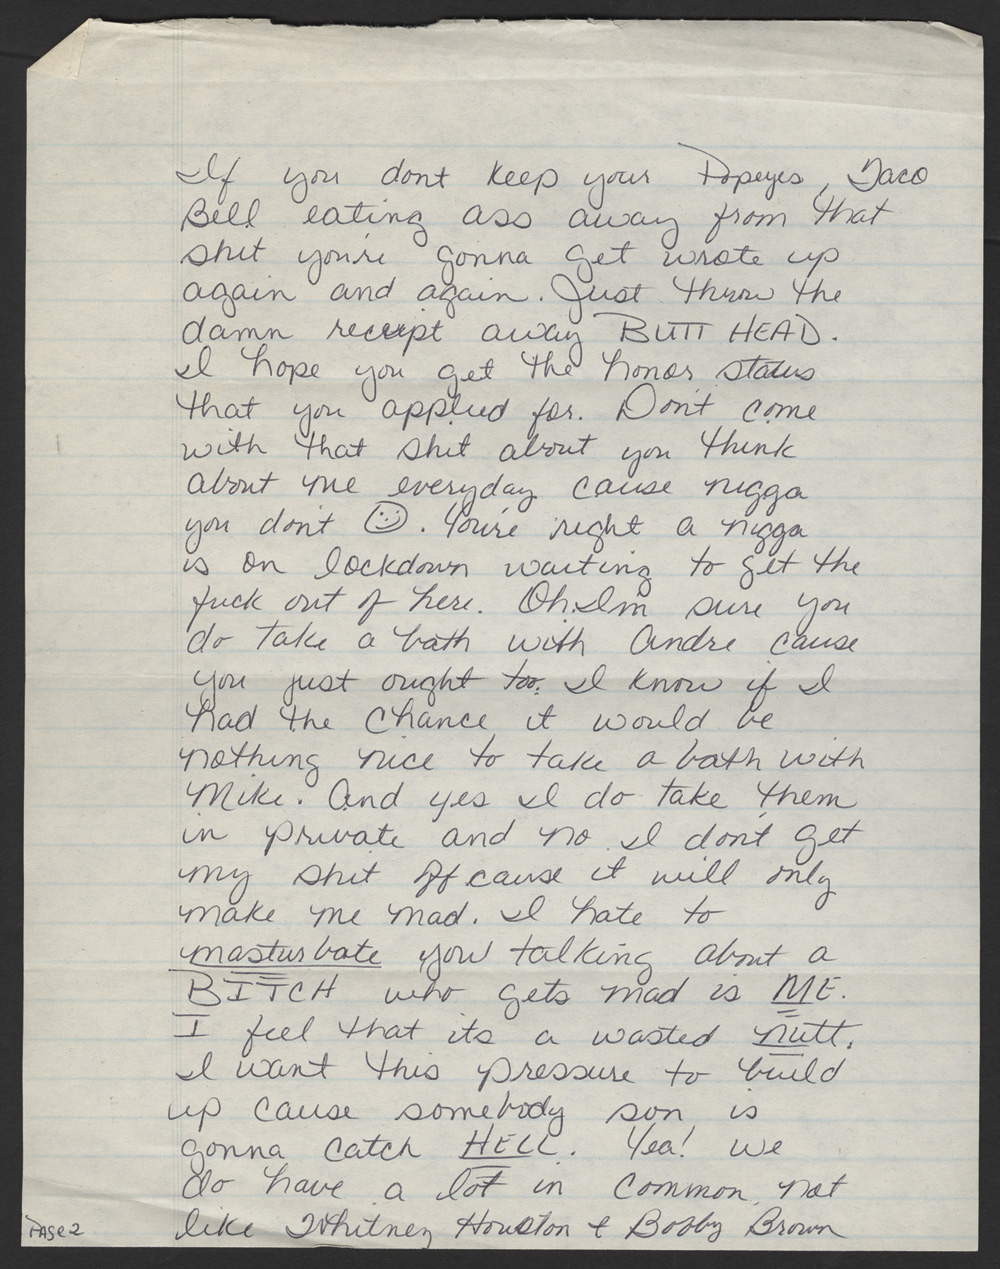 If you dont keep your Popeyes, Taco
Bell eating ass away from that
shit you're gonna get wrote up
again and again. Just throw the
damn receipt away BUTT HEAD.
I hope you get the honor status
that you applied for. Don't come
with that shit about you think
about me everyday cause nigga
you don't ☺. You're right a nigga
is on lockdown waiting to get the
fuck out of here. Oh, I'm sure you
do take a bath with Andre cause
you just ought too. I know if I
had the chance it would be
nothing nice to take a bath with
Mike. And yes I do take them
in private and no I don't get
my shit off cause it will only
make me mad. I hate to
masturbate you talking about a
BITCH who gets mad is ME.
I feel that its a wasted nutt.
I want this pressure to build
up cause somebody son is
gonna catch HELL. Yea! we
do have a lot in common not
like Whitney Houston & Bobby Brown
PAGE 2